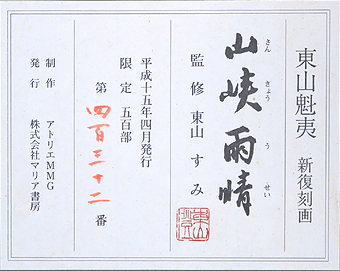 東山魁夷 新復刻画
山峡雨晴
さんきょううせい
監修 東山すみ
平成十五年四月発行
限定 五百部
第 四百三十二 番
制作 アトリエMMG
発行 株式会社マリア書房